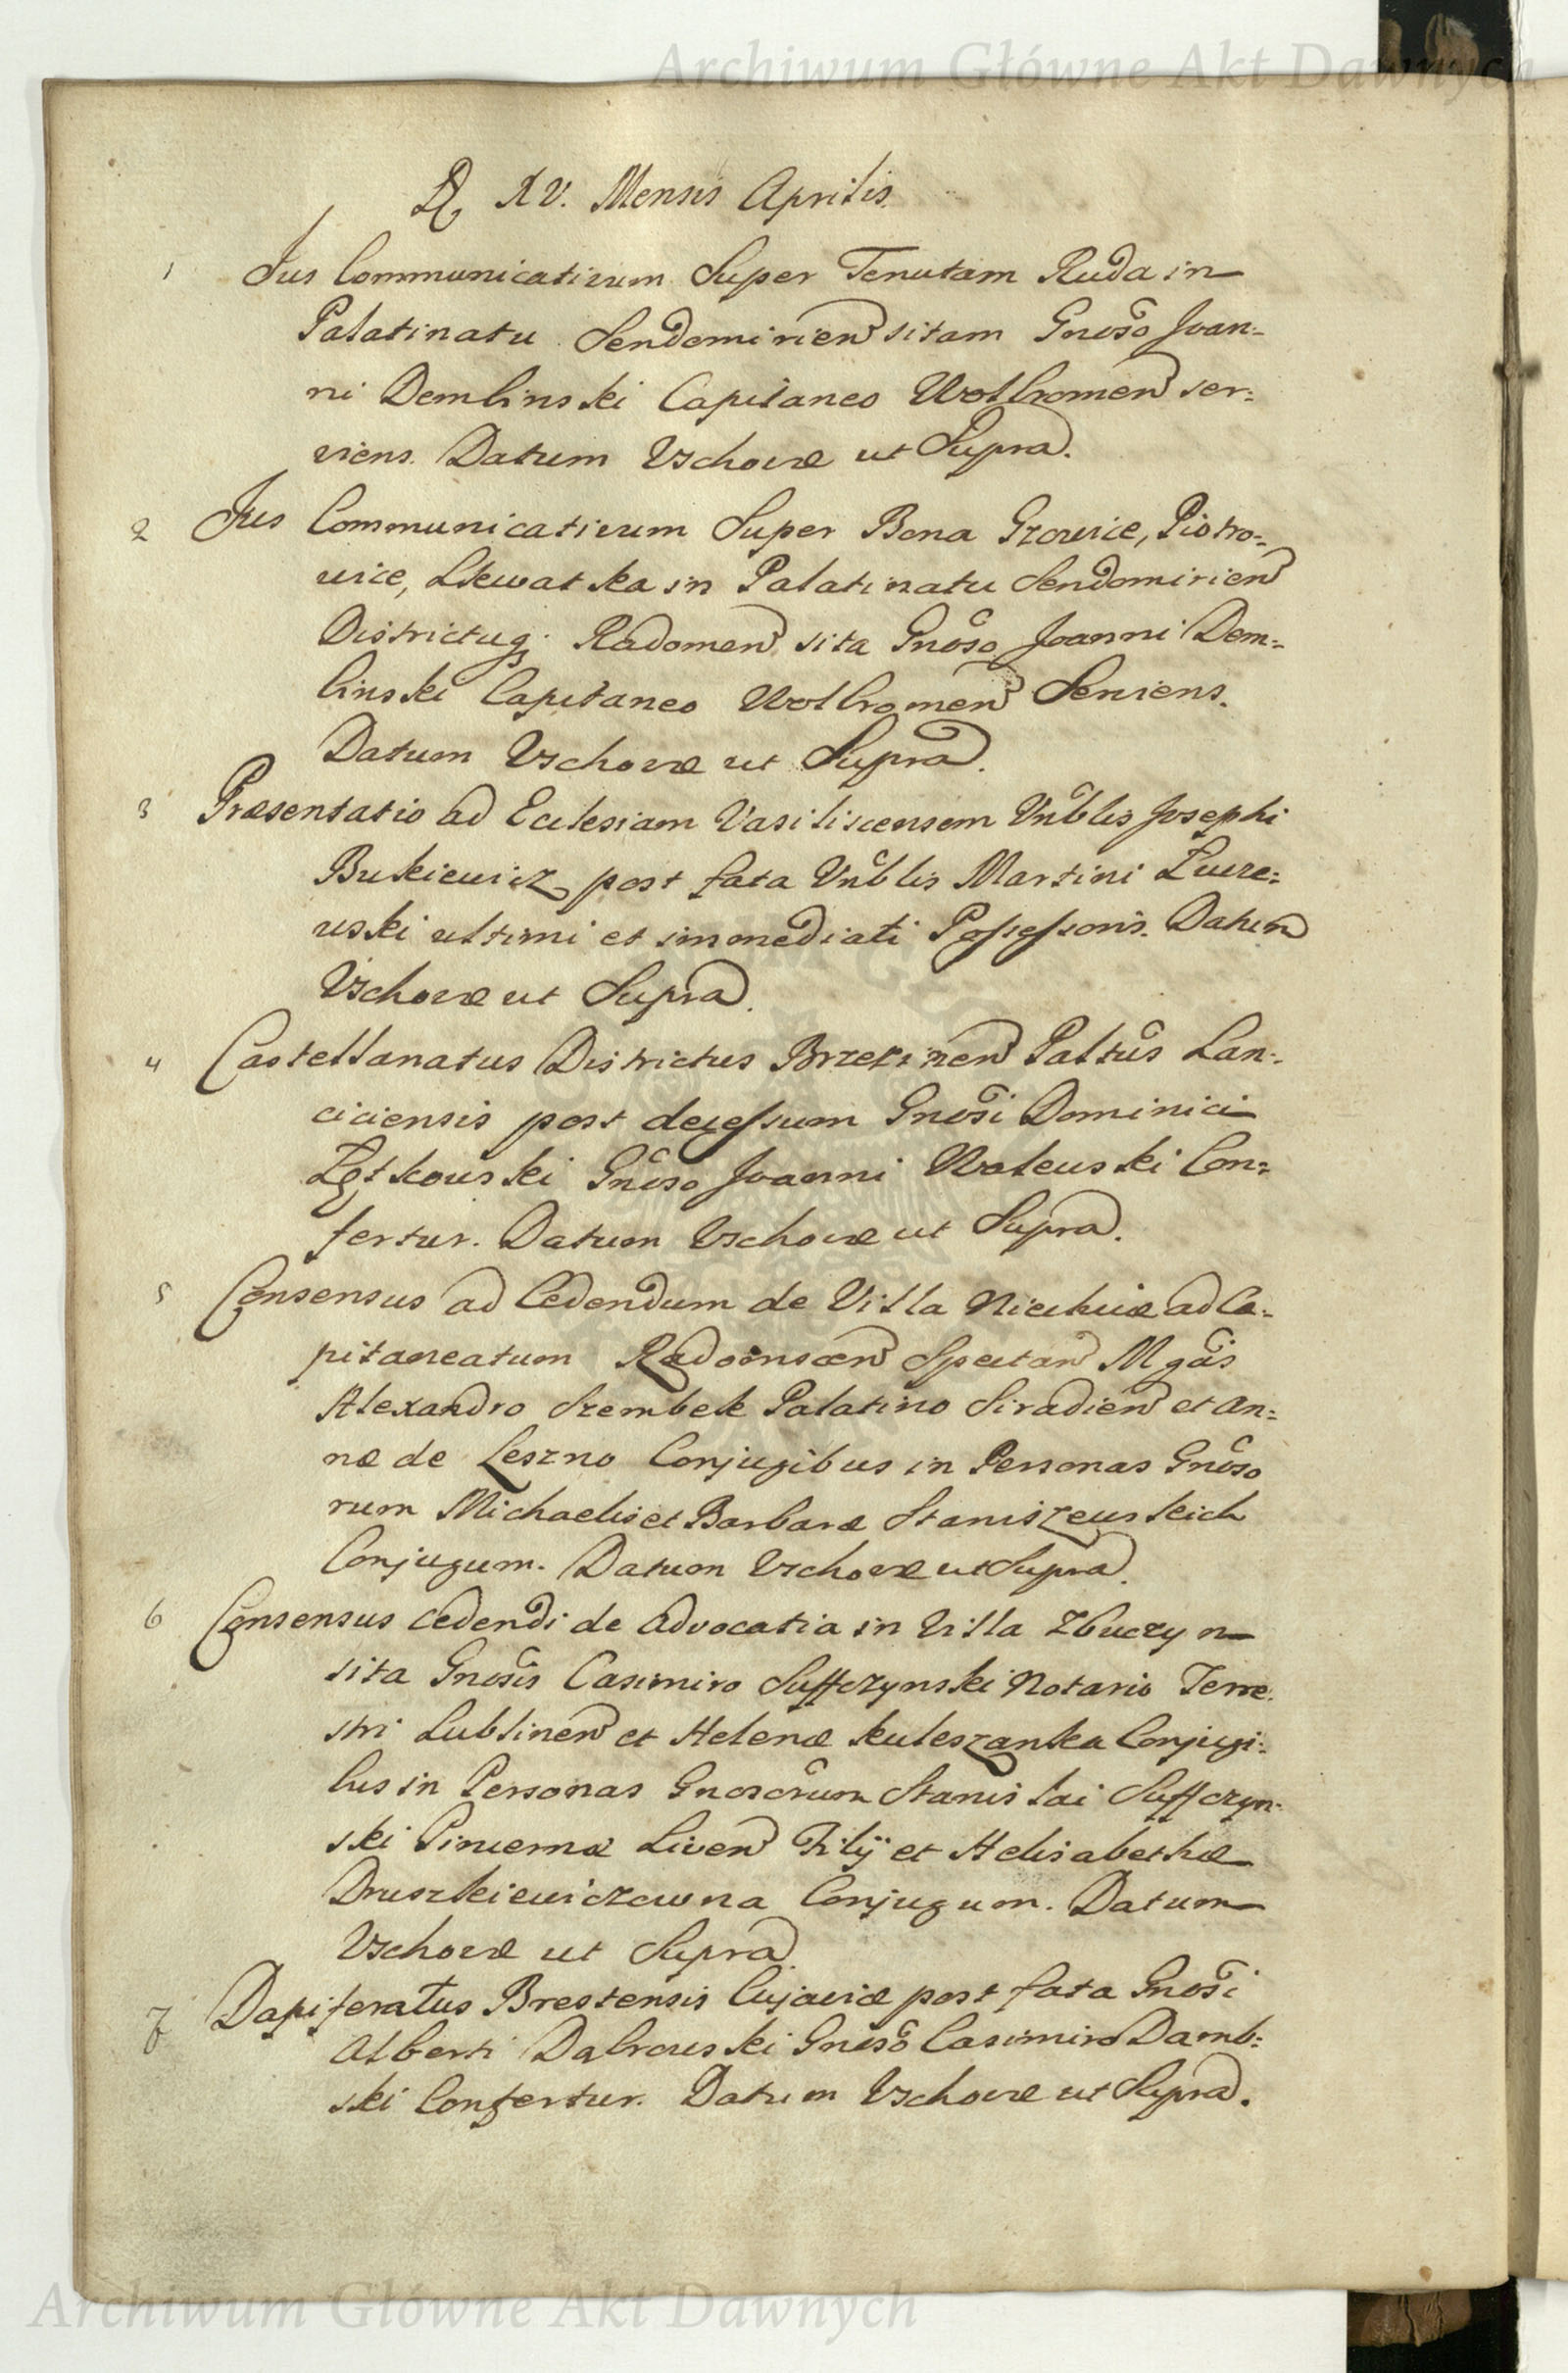 Archiwum Główne Akt Dawnych
D. XV. Mensis Aprilis.
1 Jus Communicativum Super Tenutam Ruda in
Palatinatu Sendomirien sitam Gnoso Joan-
ni Dembinski Capitaneo Wolbromen ser-
viens. Datum Vschovæ ut Supra.
2 Jus Communicativum Super Bona Grzowice, Piotro-
wice, in Palatinatu Sendomirien
Districtuq; Radomen sita Gnoso Joanni Dem-
binski Capitaneo Wolbromen Serviens.
Datum Vschovæ ut Supra.
3 Præsentatio ad Ecclesiam Vasiliscensem Vnblis Josephi
Bukiewicz post fata Vnblis Martini
wski ultimi et immediati Possessoris. Datum
Vschovæ ut Supra.
4 Castellanatus Districtus Brzezinen Paltus Lan-
ciciensis post decessum Gnosi Dominici
Gnoso Joanni Walewski Con-
fertur. Datum Vschovæ ut Supra.
5 Consensus ad Cedendum de Villa ad Ca-
pitaneatum Radomscen Spectan Mgcis
Alexandro Szembek Palatino Siradien et An-
næ de Leszno Conjugibus in Personas Gnoso
rum Michaelis et Barbaræ Staniszewskich
Conjugum. Datum Vschovæ ut Supra.
6 Consensus cedendi de Advocatia in Villa Zbuczyn
sita Gnosis Casimiro Suffczynski Notario Terre-
stri Lublinen et Helenæ Kuleszanka Conjugi-
bus in Personas Gnosorum Stanislai Suffczyn-
ski Pincernæ Liven Filij et Helisabethæ
Druszkiewiczowna Conjugum. Datum
Vschovæ ut Supra.
7 Dapiferatus Brestensis Cujaviæ post fata Gnosi
Alberti Dąbrowski Gnoso Casimiro Damb-
ski Confertur. Datum Vschovæ ut Supra.
Archiwum Główne Akt Dawnych